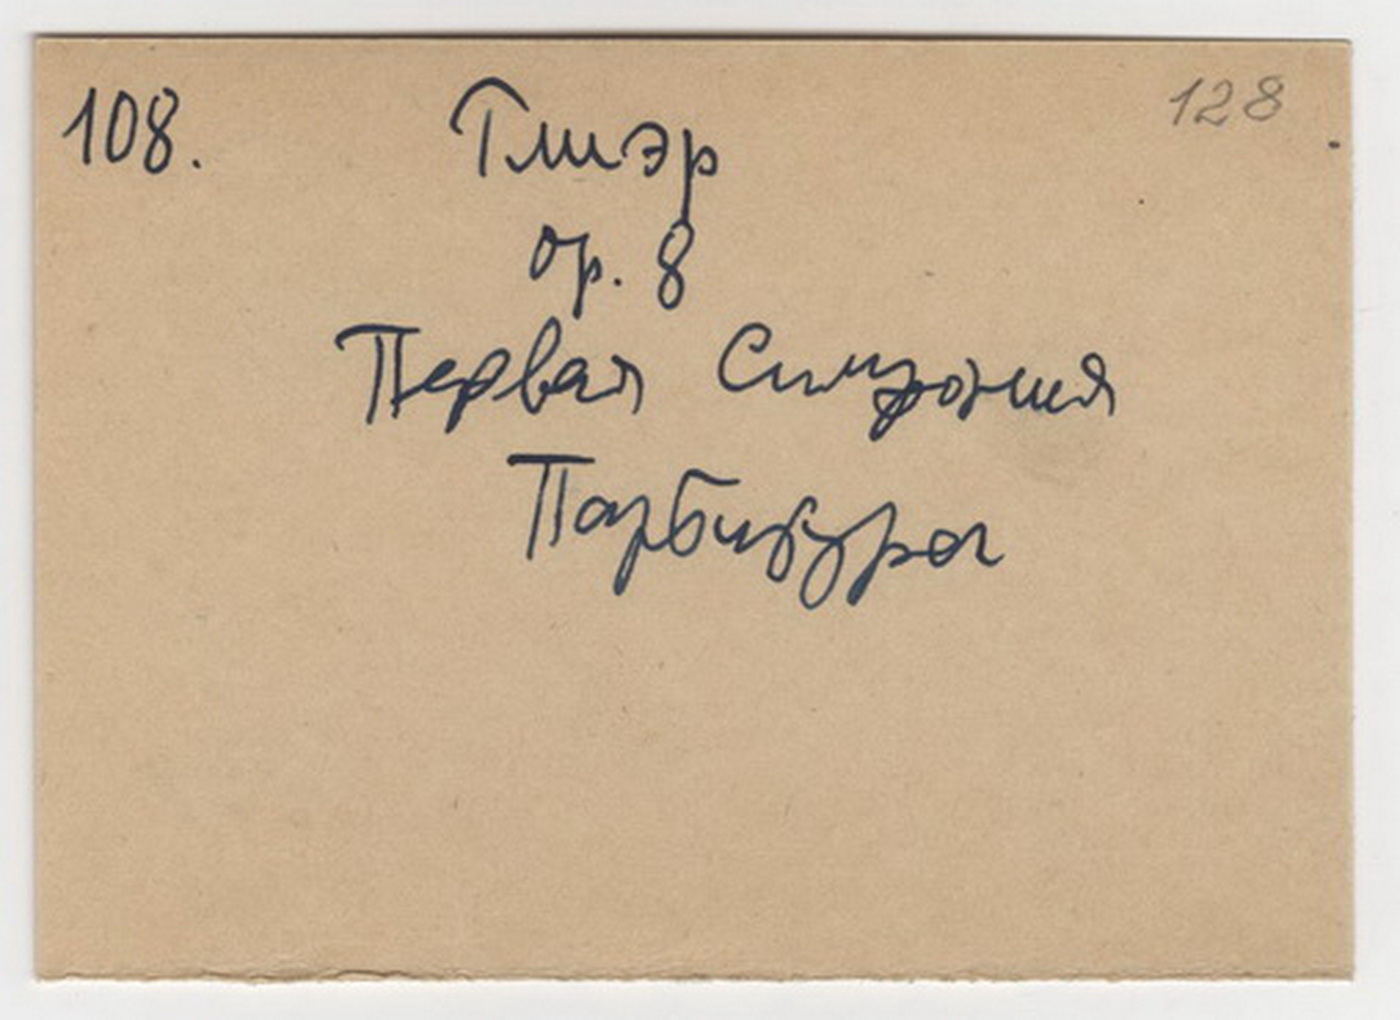 108. Глиэр 128
op. 8
Первая Симфония
Партитура